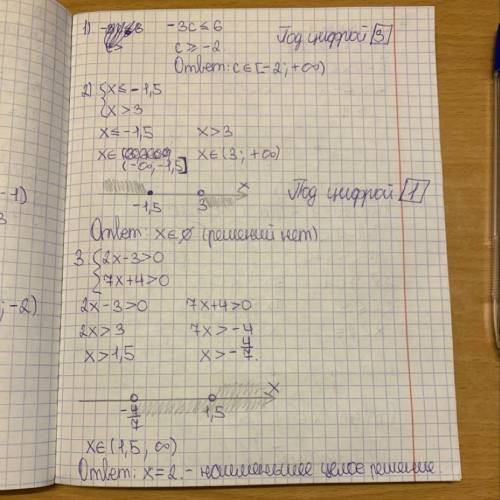 1) -3c ≤ 6
c ≥ -2
Под цифрой 3
Ответ: c ∈ [-2; +∞)
2) { x ≤ -1,5
{ x > 3
x ≤ -1,5 x > 3
x ∈ (-∞, -1,5] x ∈ (3; +∞)
-1,5 3 x
Под цифрой 1
Ответ: x ∈ ∅ (решений нет)
3. { 2x-3>0
{ 7x+4>0
2x-3>0 7x+4>0
2x>3 7x>-4
x>1,5 x>-4/7.
-4/7 1,5 x
x ∈ (1,5, ∞)
Ответ: x=2. - наименьшее целое решение.
-1)
3
; -2)